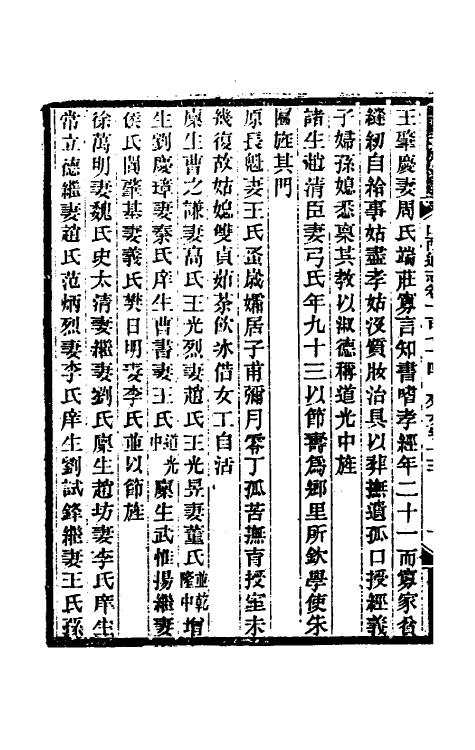 王肇慶妻周氏端莊寡言知書嗜孝經年二十一而寡家貧
縫紉自給事姑盡孝姑沒質妝治具以葬撫遺孤口授經義
子婦孫媳悉稟其教以淑德稱道光中旌
諸生趙清臣妻弓氏年九十三以節壽爲鄉里所欽學使朱
旌其門
原長魁妻王氏蚤歲孀居子甫彌月零丁孤苦撫育授室未
幾復故姑媳雙貞茹荼飲冰借女工自活
廩生曹之謙妻高氏王光烈妻趙氏王光昱妻董氏並乾隆中增
生劉慶璋妻秦氏庠生曹書妻王氏道光中廩生武惟揚繼妻
侯氏閻肇基妻義氏樊日明妻李氏並以節旌
徐萬明妻魏氏史太清妻繼妻劉氏廩生趙坊妻李氏庠生
常立德繼妻趙氏范炳烈妻李氏庠生劉試鋒繼妻王氏孫